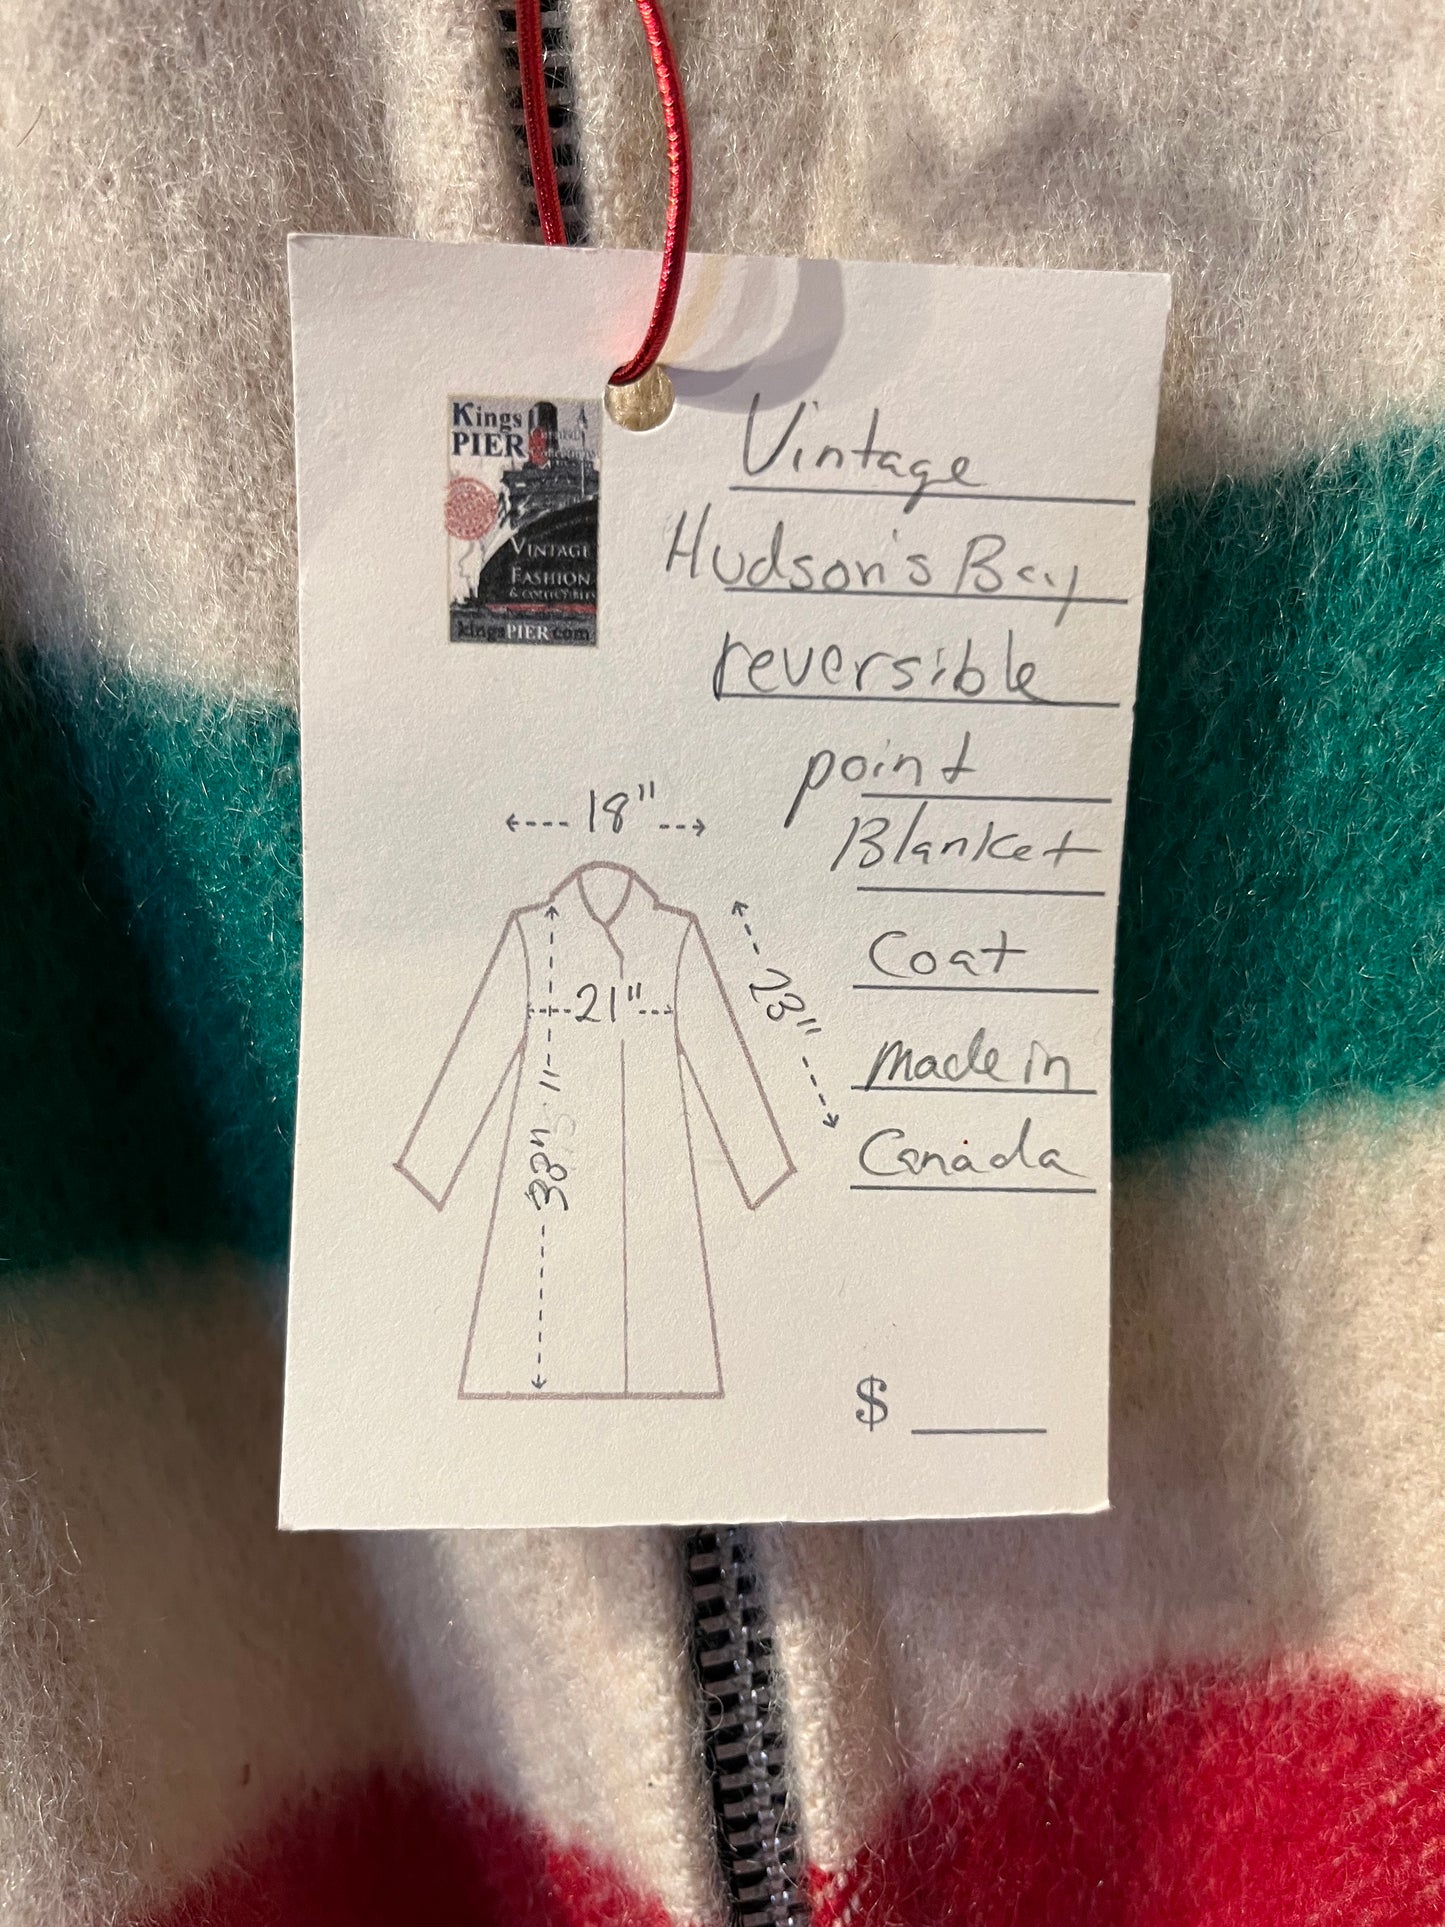 Kings
PIER
VINTAGE
FASHION
& COLLECTIBLES
kingsPIER.com
Vintage
Hudson's Bay
reversible
point
Blanket
Coat
made in
Canada
18"
21"
23"
38"
$